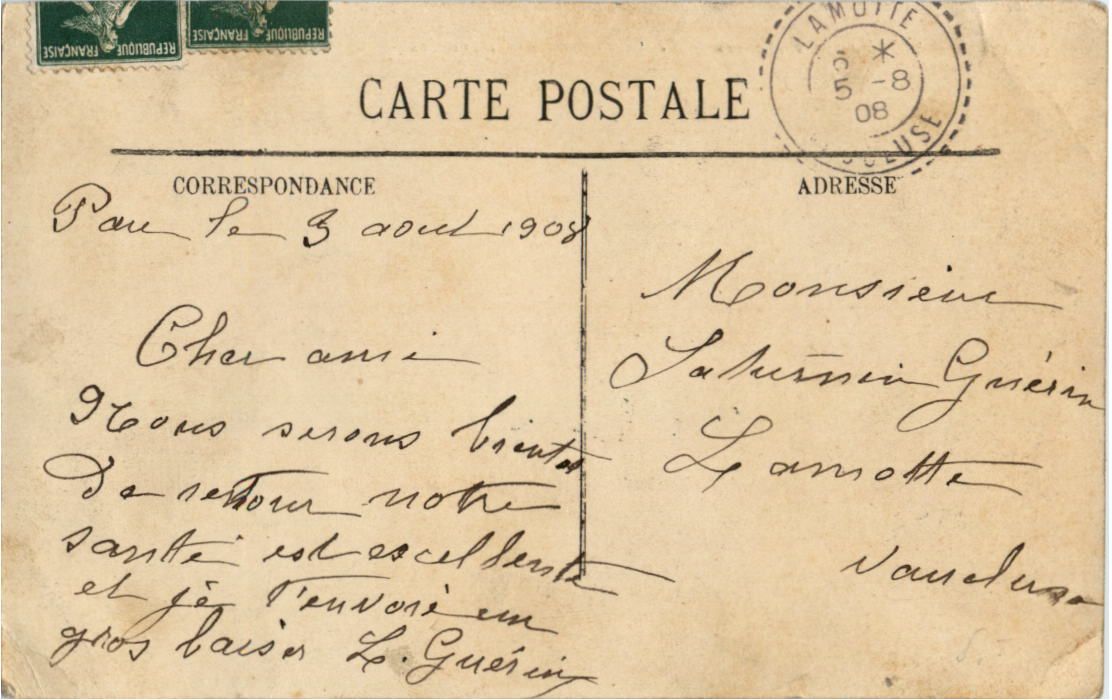 REPUBLIQUE FRANÇAISE
REPUBLIQUE FRANÇAISE
LAMOTTE
5 -8
08
VAUCLUSE
CARTE POSTALE
CORRESPONDANCE
Pau le 3 aout 1908
Cher ami
Nous serons bientot
De retour notre
santé est excellente
et je t'envoie un
gros baiser L. Guérin
ADRESSE
Monsieur
Saturnin Guérin
Lamotte
Vaucluse